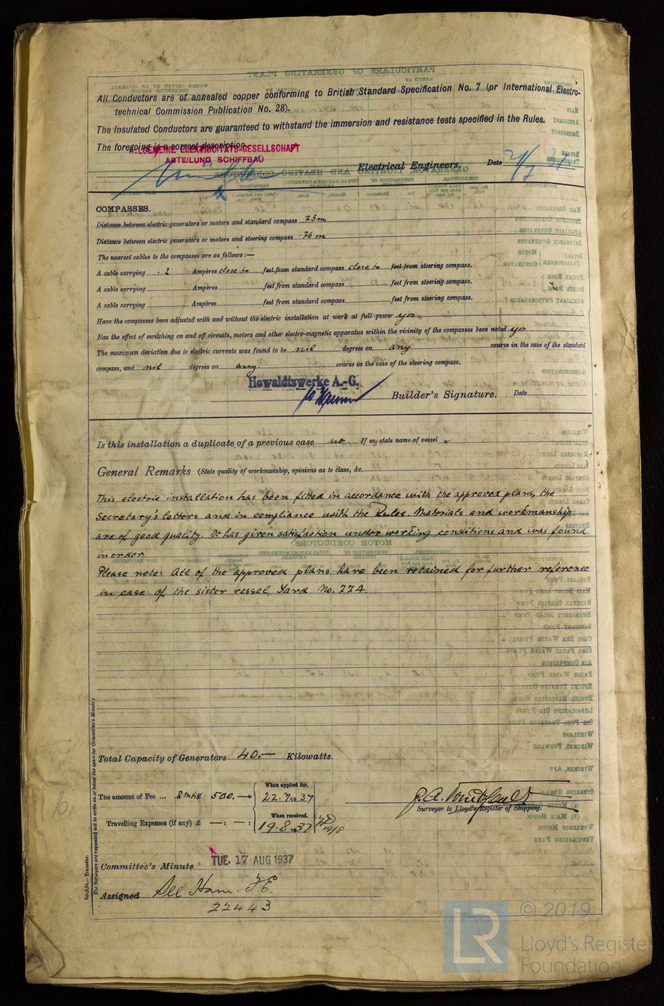 All Conductors are of annealed copper conforming to British Standard Specification No. 7 (or International Electro-
technical Commission Publication No. 28).
The Insulated Conductors are guaranteed to withstand the immersion and resistance tests specified in the Rules.
The foregoing is a correct description.
ALLGEMEINE ELEKTRICITÄTS-GESELLSCHAFT
ABTEILUNG SCHIFFBAU
Electrical Engineers. Date
COMPASSES.
Distance between electric generators or motors and standard compass 73 m
Distance between electric generators or motors and steering compass 76 m
The nearest cables to the compasses are as follows:—
A cable carrying .2 Ampères close to feet from standard compass close to feet from steering compass.
A cable carrying Ampères feet from standard compass feet from steering compass.
A cable carrying Ampères feet from standard compass feet from steering compass.
Have the compasses been adjusted with and without the electric installation at work at full power yes
Has the effect of switching on and off circuits, motors and other electro-magnetic apparatus within the vicinity of the compasses been noted yes
The maximum deviation due to electric currents was found to be nil degrees on any course in the case of the standard
compass, and nil degrees on any course in the case of the steering compass.
Howaldtswerke A.-G.
Builder's Signature. Date
Is this installation a duplicate of a previous case no If so, state name of vessel
General Remarks (State quality of workmanship, opinions as to class, &c.
This electric installation has been fitted in accordance with the approved plans, the
Secretary's letters and in compliance with the Rules. Materials and workmanship
are of good quality. It has given satisfaction under working conditions and was found
in order.
Please note: All of the approved plans have been retained for further reference
in case of the sister vessel, Yard No. 774.
Total Capacity of Generators 40.— Kilowatts.
The amount of Fee ... 500.— When applied for, 22.7.1937
Travelling Expenses (if any) £ —:—: When received, 19.8.37
Surveyor to Lloyd's Register of Shipping.
Committee's Minute TUE. 17 AUG 1937
Assigned See Ham. F.E.
22443
LR
© 2019
Lloyd's Register
Foundation